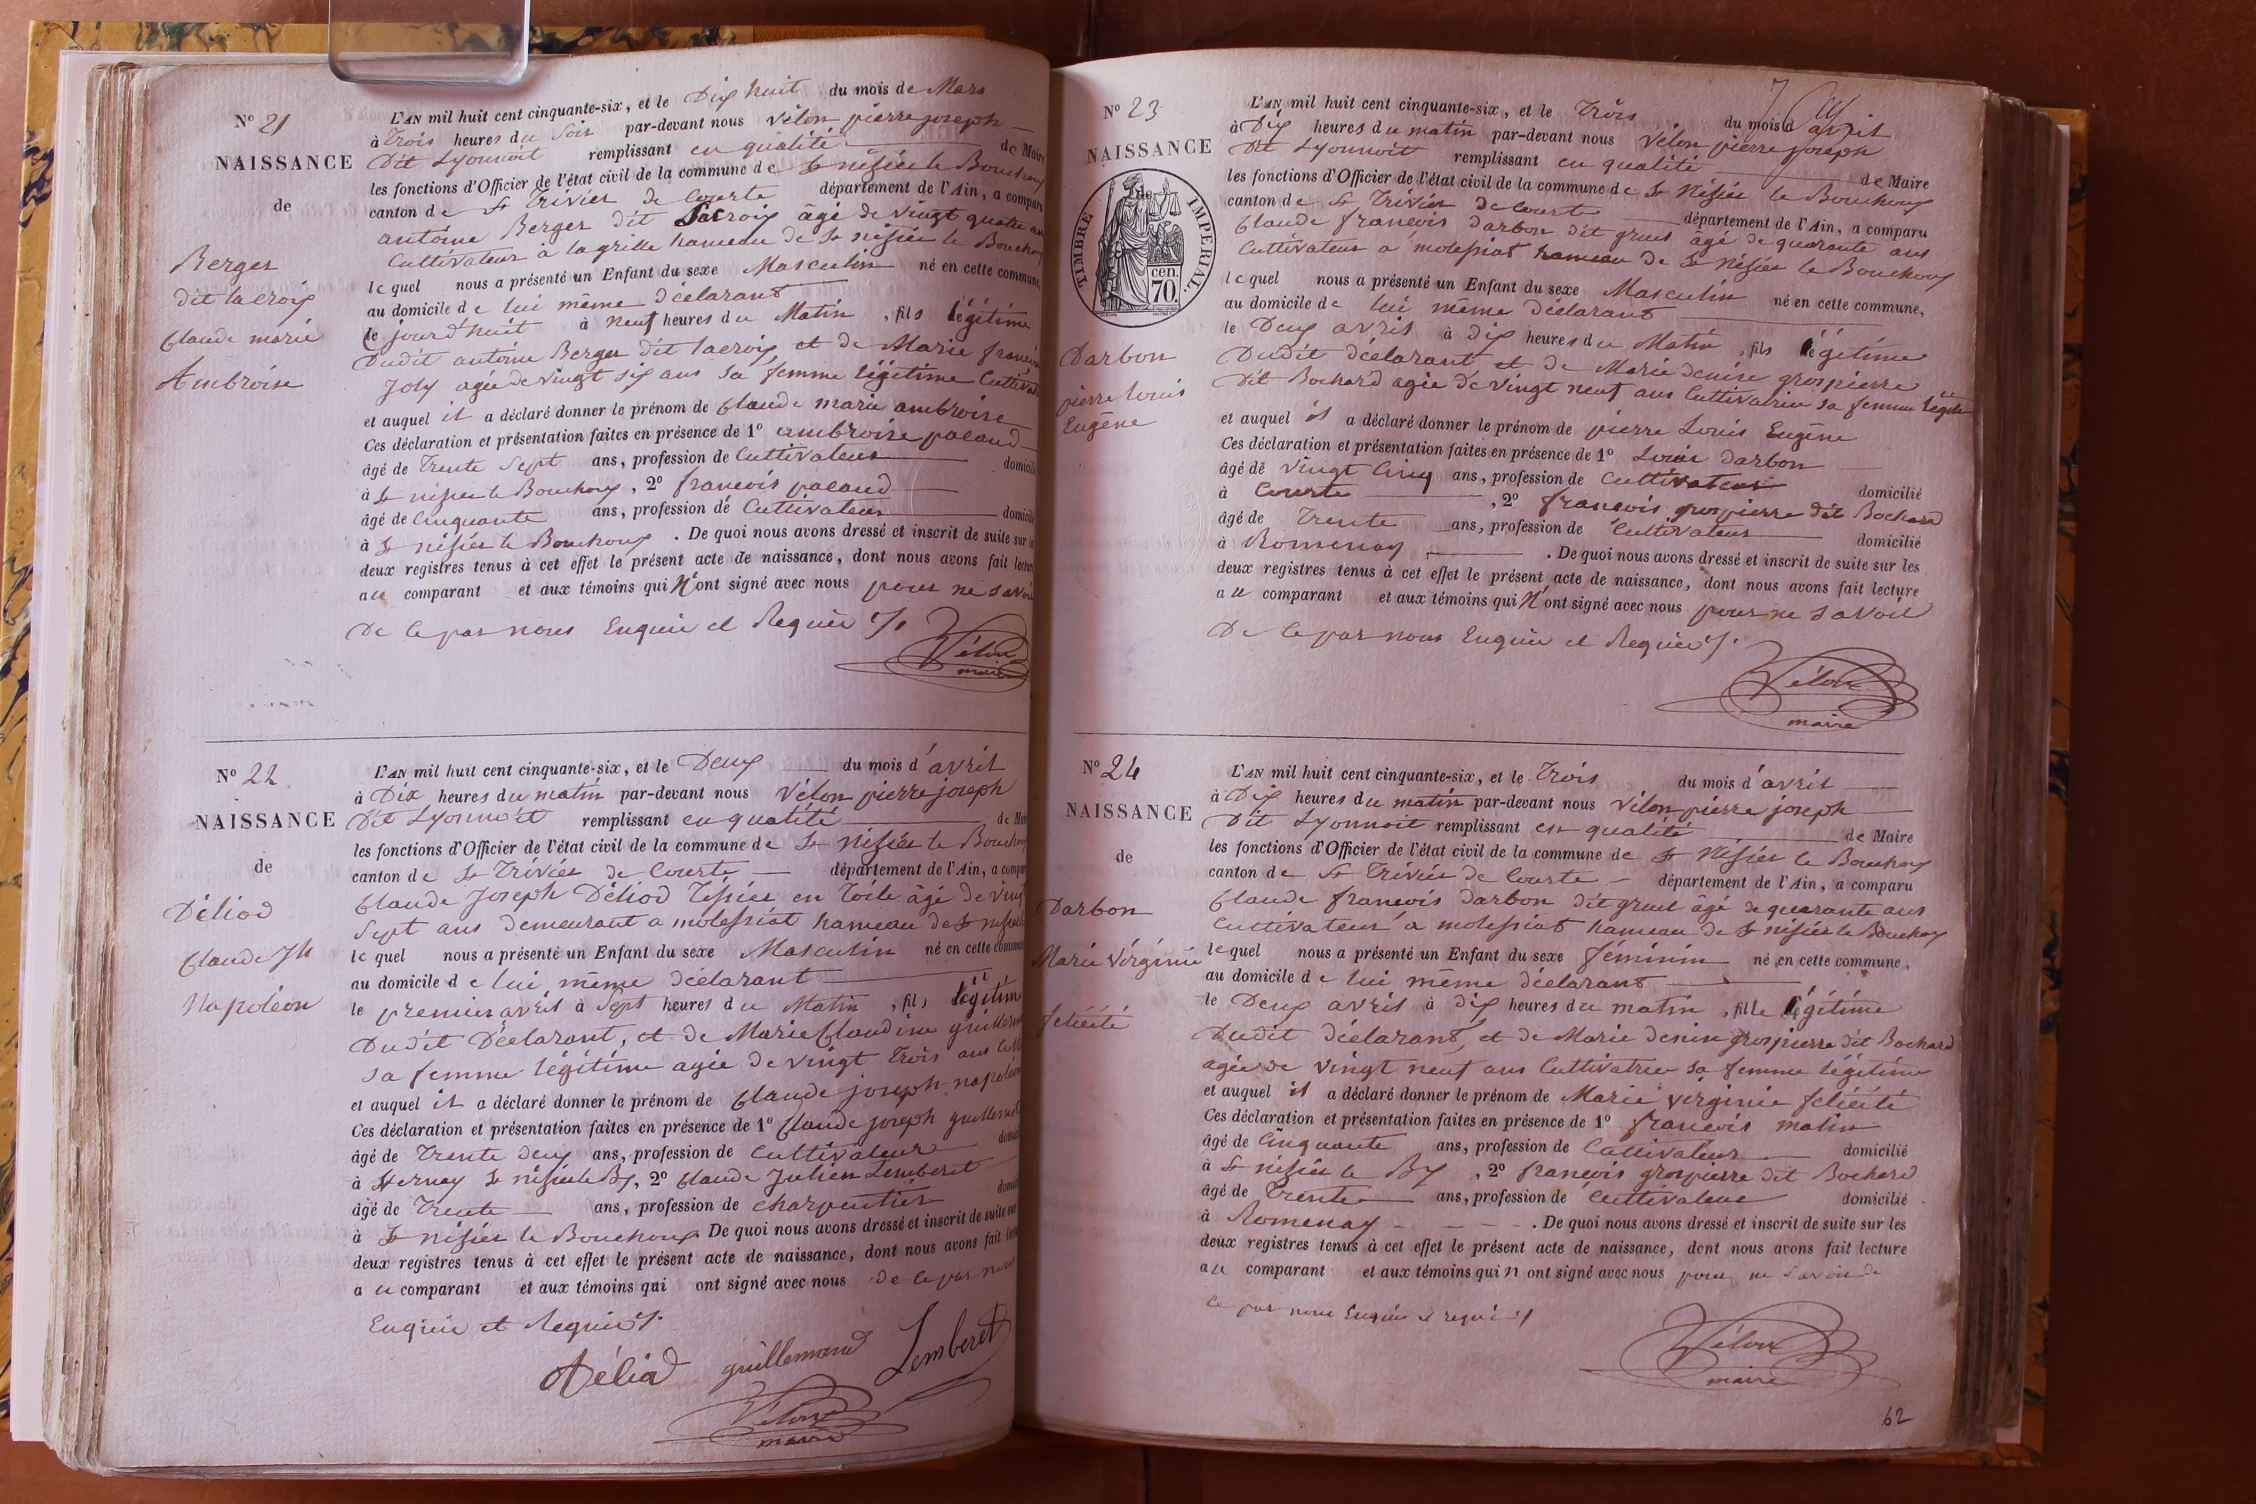 N° 21
NAISSANCE
de
Berger
dit lacroix
Claude marie
Ambroise
L'AN mil huit cent cinquante-six, et le Dix huit du mois de Mars
à Trois heures du Soir par-devant nous Vélon pierre joseph
Dit Lyonnoit remplissant en qualité de Maire
les fonctions d'Officier de l'état civil de la commune de St nésiée le Bouchoux
canton de St Trivier de Courte département de l'Ain, a comparu
antoine Berger dit Lacroix âgé de vingt quatre an
Cultivateur à la grille hameau de St nésiée le Bouchoux
lequel nous a présenté un Enfant du sexe Masculin né en cette commune,
au domicile de lui même déclarant
le jourd'huit à neuf heures du Matin, fils légitime
Dudit antoine Berger dit lacroix et de Marie françoise
Joly agée de vingt six ans sa femme légitime Cultiva
et auquel il a déclaré donner le prénom de Claude marie ambroise
Ces déclaration et présentation faites en présence de 1° ambroise pacaud
âgé de Trente Sept ans, profession de Cultivateur domicilié
à St nésiée le Bouchoux, 2° francois pacaud
âgé de Cinquante ans, profession de Cultivateur domicilié
à St nésiée le Bouchoux. De quoi nous avons dressé et inscrit de suite sur les
deux registres tenus à cet effet le présent acte de naissance, dont nous avons fait lecture
au comparant et aux témoins qui N'ont signé avec nous pour ne Savoir
De ce par nous Enquie et Requie ./.
Vélon
maire
N° 22
NAISSANCE
de
Déliod
Claude Jh
Napoléon
L'AN mil huit cent cinquante-six, et le Deux du mois d'avril
à Dix heures du matin par-devant nous Vélon pierre joseph
Dit Lyonnoit remplissant en qualité de Maire
les fonctions d'Officier de l'état civil de la commune de St Nésiée le Bouchoux
canton de St Trivier de Courte département de l'Ain, a comparu
Claude Joseph Déliod Tissier en Toile âgé de vingt
Sept ans demeurant a molessiat hameau de St nésiée
lequel nous a présenté un Enfant du sexe Masculin né en cette commune
au domicile de lui même déclarant
le premier avril à Sept heures du Matin, fils légitim
Dudit Déclarant, et de Marie Claudine guillermin
sa femme légitime agée de vingt Trois ans Cult
et auquel il a déclaré donner le prénom de Claude joseph napoléon
Ces déclaration et présentation faites en présence de 1° Claude joseph guillemaud
âgé de Trente deux ans, profession de Cultivateur domicilié
à Hernay St nésiée le Bx, 2° Claude Julien Lemberet
âgé de Trente ans, profession de charpentier domicilié
à St nésiée le Bouchoux De quoi nous avons dressé et inscrit de suite sur
deux registres tenus à cet effet le présent acte de naissance, dont nous avons fait lecture
au comparant et aux témoins qui ont signé avec nous de ce par nous
Enquie et Requie ./.
Déliod guillemaud Lemberet
Vélon
maire
N° 23
NAISSANCE
TIMBRE IMPERIAL.
70 cen.
Darbon
pierre louis
Eugène
L'AN mil huit cent cinquante-six, et le Trois du mois d'avril
à Dix heures du matin par-devant nous Vélon pierre joseph
Dit Lyonnoit remplissant en qualité de Maire
les fonctions d'Officier de l'état civil de la commune de St Nésiée le Bouchoux
canton de St Trivier de Courte département de l'Ain, a comparu
Claude francois darbon dit gruel âgé de quarante ans
Cultivateur a molessiat hameau de St Nésiée le Bouchoux
lequel nous a présenté un Enfant du sexe Masculin né en cette commune,
au domicile de lui même déclarant
le Deux avril à dix heures du Matin, fils légitime
Dudit déclarant et de Marie denise grospierre
dit Bochard agée de vingt neuf ans Cultivatrice sa femme légite
et auquel il a déclaré donner le prénom de pierre Louis Eugène
Ces déclaration et présentation faites en présence de 1° Louis darbon
âgé de vingt Cinq ans, profession de Cultivateur domicilié
à Courte, 2° francois grospierre dit Bochard
âgé de Trente ans, profession de Cultivateur domicilié
à Romenay. De quoi nous avons dressé et inscrit de suite sur les
deux registres tenus à cet effet le présent acte de naissance, dont nous avons fait lecture
au comparant et aux témoins qui N'ont signé avec nous pour ne Savoir
De ce par nous Enquie et Requie ./.
Vélon
maire
N° 24
NAISSANCE
de
Darbon
Marie Virginie
félicité
L'AN mil huit cent cinquante-six, et le Trois du mois d'avril
à Dix heures du matin par-devant nous Vélon pierre joseph
Dit Lyonnoit remplissant en qualité de Maire
les fonctions d'Officier de l'état civil de la commune de St Nésiée le Bouchoux
canton de St Trivier de Courte département de l'Ain, a comparu
Claude francois darbon dit gruel âgé de quarante ans
Cultivateur a molessiat hameau de St nésiée le Bouchoux
lequel nous a présenté un Enfant du sexe féminin né en cette commune,
au domicile de lui même déclarant
le Deux avril à dix heures du matin, fille légitime
Dudit déclarant, et de Marie denise grospierre dit Bochard
agée de vingt neuf ans Cultivatrice sa femme légitime
et auquel il a déclaré donner le prénom de Marie virginie félicité
Ces déclaration et présentation faites en présence de 1° francois matin
âgé de Cinquante ans, profession de Cultivateur domicilié
à St nésiée le Bx, 2° francois grospierre dit Bochard
âgé de Trente ans, profession de Cultivateur domicilié
à Romenay. De quoi nous avons dressé et inscrit de suite sur les
deux registres tenus à cet effet le présent acte de naissance, dont nous avons fait lecture
au comparant et aux témoins qui n ont signé avec nous pour ne Savoir de
ce par nous Enquie et requie ./.
Vélon
maire
62